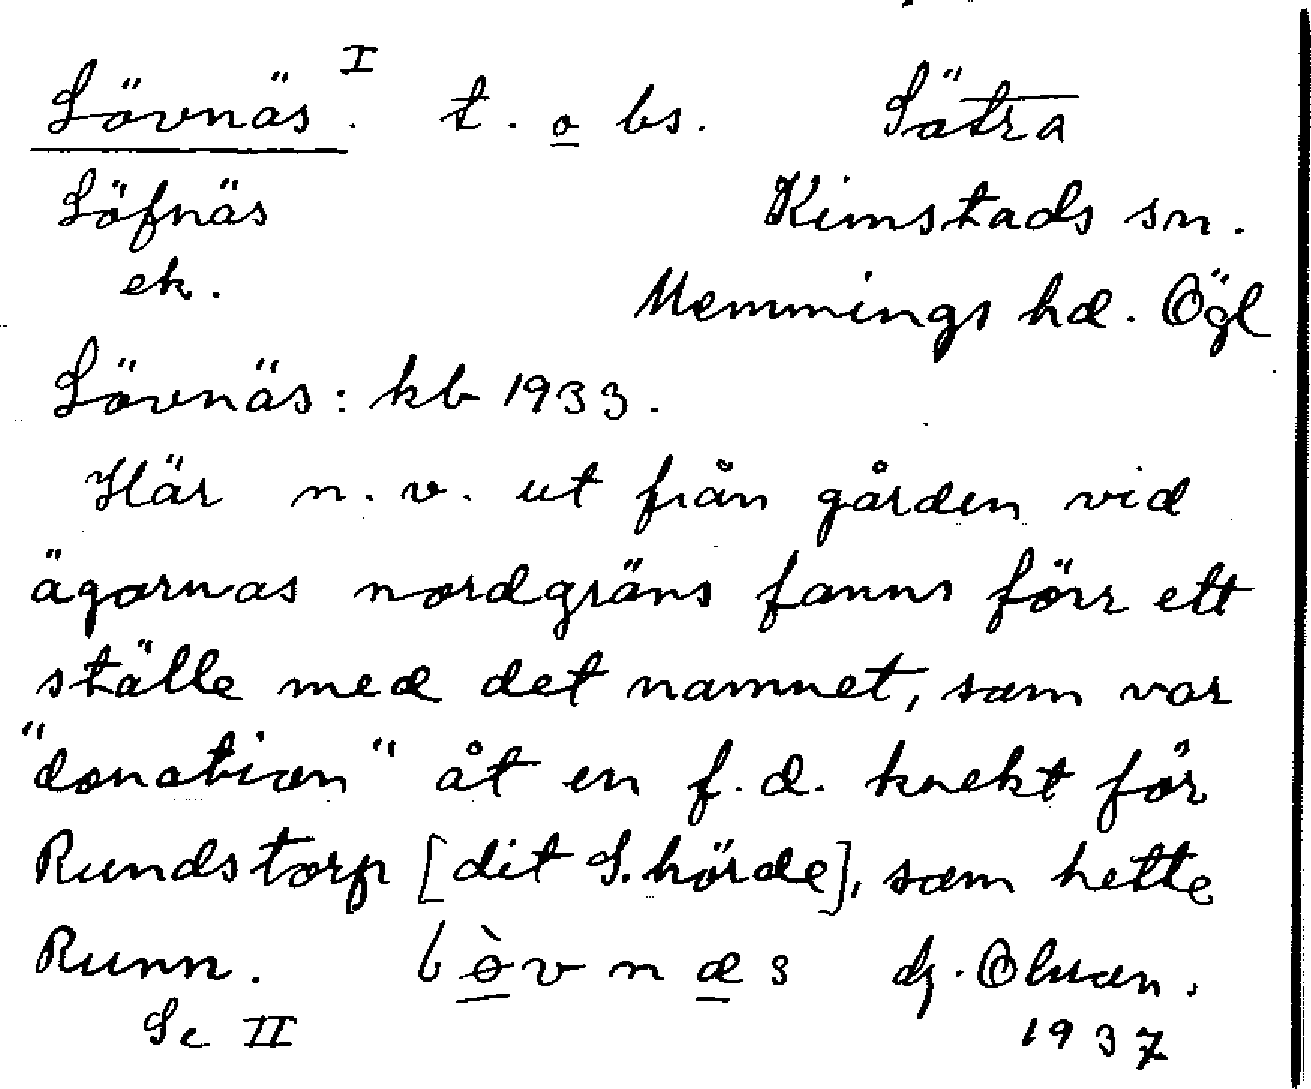 Lövnäs I. t. o bs. Sätra
Löfnäs Kimstads sn.
ek. Memmings hd. Ögl
Lövnäs: kb 1933.
Här n. v. ut från gården vid
ägornas nordgräns fanns förr ett
ställe med det namnet, som var
"donation" åt en f. d. knekt för
Rundstorp [dit S. hörde], som hette
Runn. lòvnæs
Se II 1937